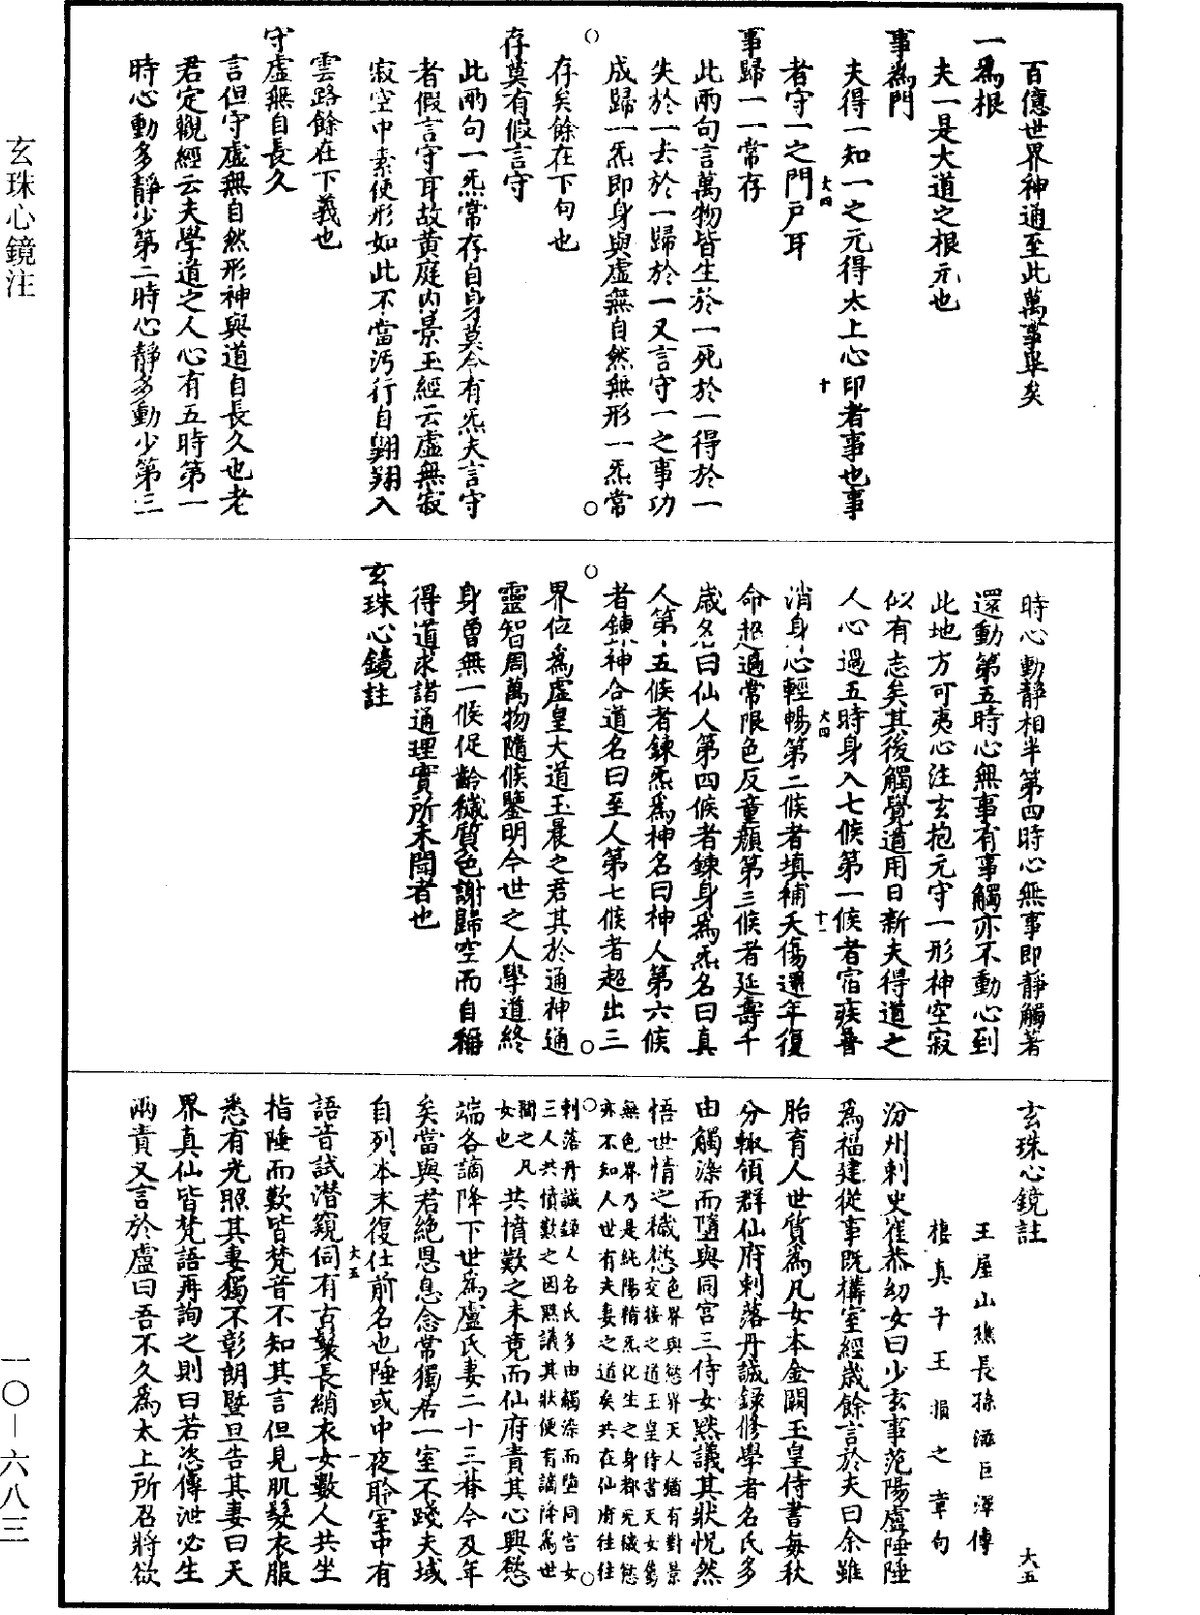 百億世界神通至此萬事畢矣
一為根
夫一是大道之根元也
事為門
夫得一知一之元得太上心印者事也事
者守一之門戶耳
大四
十
事歸一一常存
此兩句言萬物皆生於一死於一得於一
失於一去於一歸於一又言守一之事功
成歸一炁即身與虛無自然無形一炁常
存矣餘在下句也
存莫有假言守
此兩句一炁常存自身莫令有炁夫言守
者假言守耳故黃庭內景玉經云虛無寂
寂空中素使形如此不當汚行自翺翔入
雲路餘在下義也
守虛無自長久
言但守虛無自然形神與道自長久也老
君定觀經云夫學道之人心有五時第一
時心動多靜少第二時心靜多動少第三
時心動靜相半第四時心無事即靜觸著
還動第五時心無事有事觸亦不動心到
此地方可夷心注玄抱元守一形神空寂
似有志矣其後觸覺道用日新夫得道之
人心過五時身入七候第一候者宿疾普
大四
十一
消身心輕暢第二候者填補夭傷還年復
命超過常限色反童顏第三候者延壽千
歲名曰仙人第四候者鍊身為炁名曰真
人第五候者鍊炁為神名曰神人第六候
者鍊神合道名曰至人第七候者超出三
界位為虛皇大道玉晨之君其於通神通
靈智周萬物隨候鑒明今世之人學道終
身曾無一候促齡穢質色謝歸空而自稱
得道求諸通理實所未聞者也
玄珠心鏡註
玄珠心鏡註
大五
王屋山樵長孫滋巨澤傳
棲真子王損之章句
汾州刺史崔恭幼女曰少玄事范陽盧陲陲
為福建從事既構室經歲餘言於夫曰余雖
胎育人世質為凡女本金闕玉皇侍書每秋
分輙領群仙府刺落丹誠録修學者名氏多
由觸染而墮與同宮三侍女默議其狀恍然
悟世情之穢慾
色界與慾界天人猶有對景
交接之道玉皇侍書天女寫
無色界乃是純陽精炁化生之身都无穢慾
亦不知人世有夫妻之道矣共在仙府往往
刺落丹誠錄人名氏多由觸染而墮同宮女
三人共憤歎之因默議其狀便有謫降為世
間之凡
女也
共憤歎之未竟而仙府責其心興慾
端各謫降下世為盧氏妻二十三朞今及年
矣當與君絕恩息念常獨居一室不踐夫域
自列本末復仕前名也陲或中夜聆室中有
大五
一
語音試潜窺伺有古鬟長綃衣女數人共坐
指陲而歎皆梵音不知其言但見肌髮衣服
悉有光照其妻獨不彰朗暨旦告其妻曰天
界真仙皆梵語再詢之則曰若恣傳泄必生
兩責又言於盧曰吾不久為太上所召將欲
玄珠心鏡注
一〇—六八三